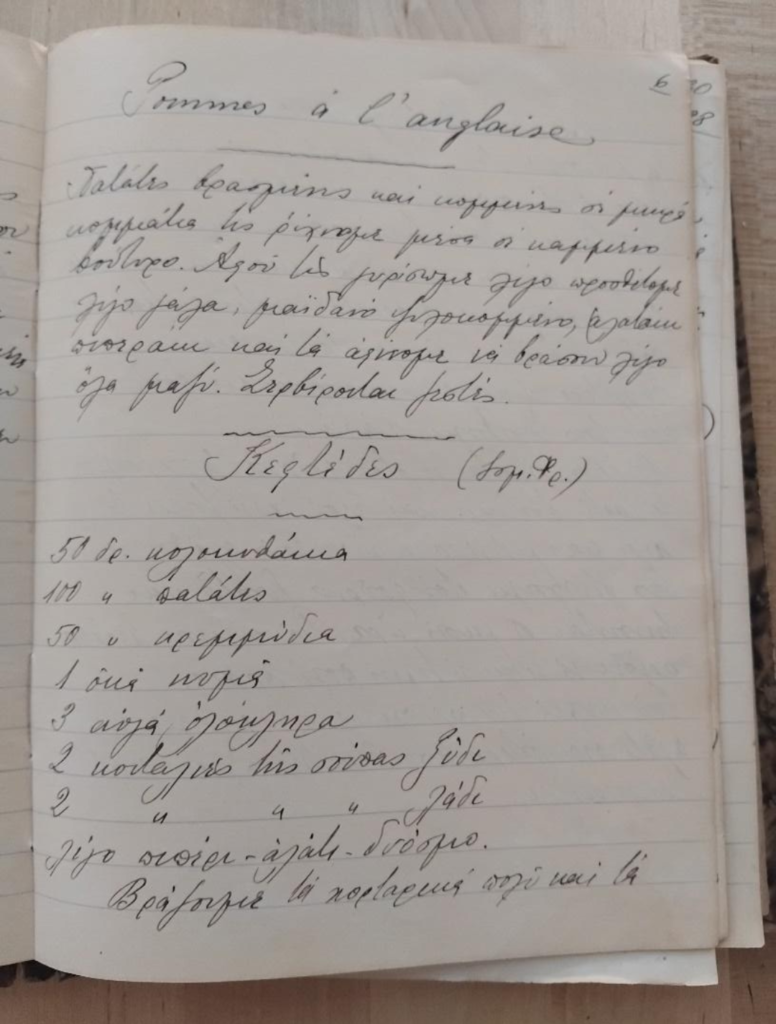 6
Pommes à l'anglaise
Πατάτες βρασμένες καὶ κομμένες σὲ μικρὰ
κομμάτια τὶς ρίχνομε μέσα σὲ καμμένο
βούτυρο. Ἀφοῦ τὶς γυρίσωμε λίγο προσθέτομε
λίγο γάλα, μαϊδανό ψιλοκομμένο, ἁλατάκι
πιπεράκι καὶ τὰ ἀφίνομε νὰ βράσουν λίγο
ὅλα μαζύ. Σερβίρονται ζεστές.
Κεφτέδες
50 δρ. κολοκυθάκια
100 " πατάτες
50 " κρεμμύδια
1 ὀκά κυμά
3 αὐγά, ὁλόκληρα
2 κουταλιές τῆς σούπας ξύδι
2 " " " λάδι
λίγο πιπέρι - ἁλάτι - δυόσμο.
Βράζουμε τὰ χορταρικά πολύ καὶ τὰ